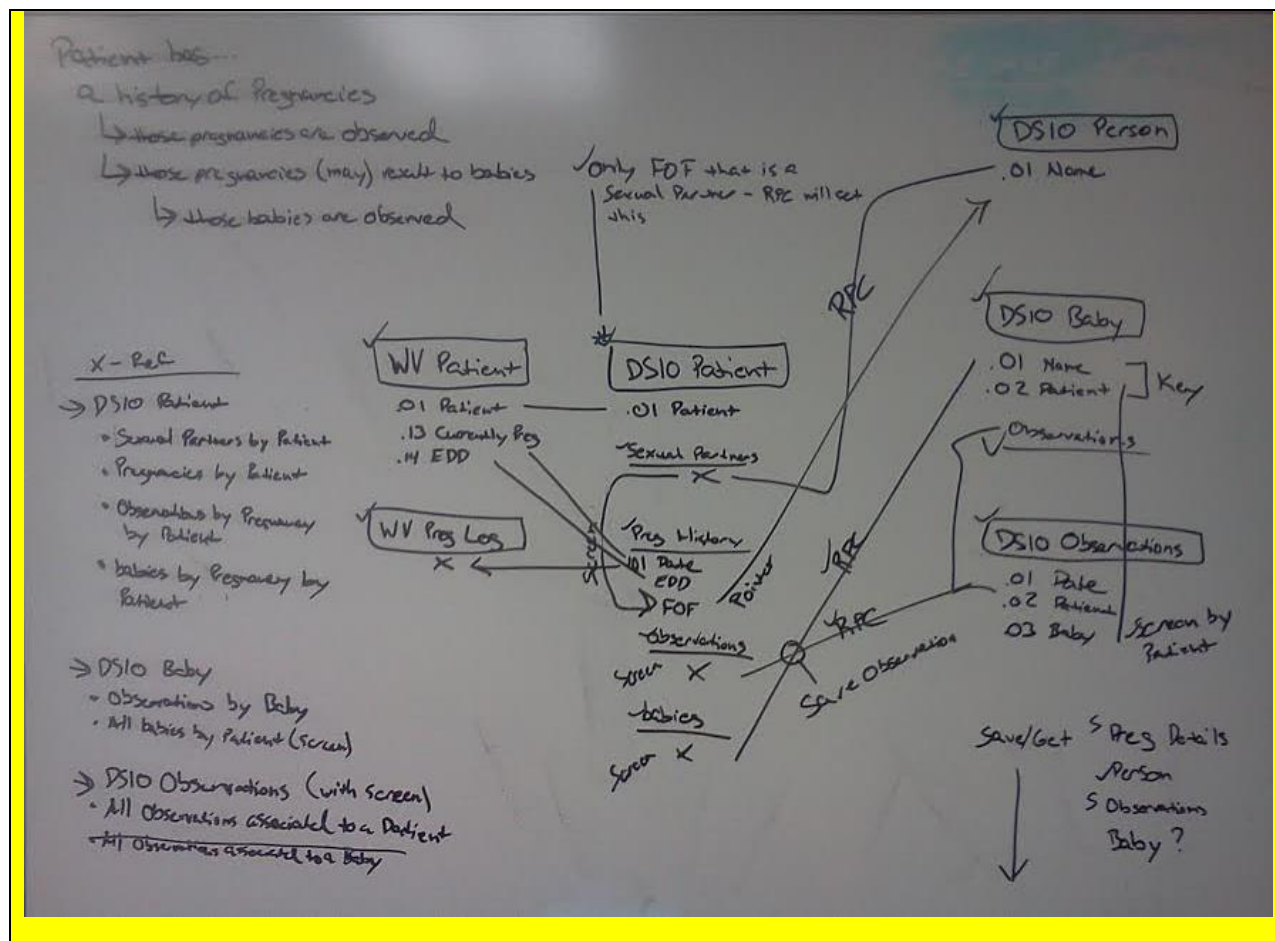 Patient has...
a history of Pregnancies
↳ those pregnancies are observed
↳ those pregnancies (may) result to babies
↳ those babies are observed
✓only FOF that is a
Sexual Partner - RPC will set
this
X-Ref
→ DSIO Patient
• Sexual Partners by Patient
• Pregnancies by Patient
• Observations by Pregnancy
by Patient
• babies by Pregnancy by
Patient
→ DSIO Baby
• Observations by Baby
• All babies by Patient (screen)
→ DSIO Observations (with screen)
• All Observations associated to a Patient
• All Observations associated to a Baby
✓ WV Patient
.01 Patient
.13 Currently Preg
.14 EDD
✓ WV Preg Log
X
* DSIO Patient
.01 Patient
✓Sexual Partners
X
Screen
✓Preg History
.01 Date
EDD
FOF
Pointer
✓Observations
Screen X
✓babies
Screen X
RPC
✓RPC
✓RPC
Save Observation
✓ DSIO Person
.01 Name
✓ DSIO Baby
.01 Name
.02 Patient
Key
Observations
✓ DSIO Observations
.01 Date
.02 Patient
.03 Baby
Screen by
Patient
Save/Get
S Preg Details
✓Person
S Observations
Baby?